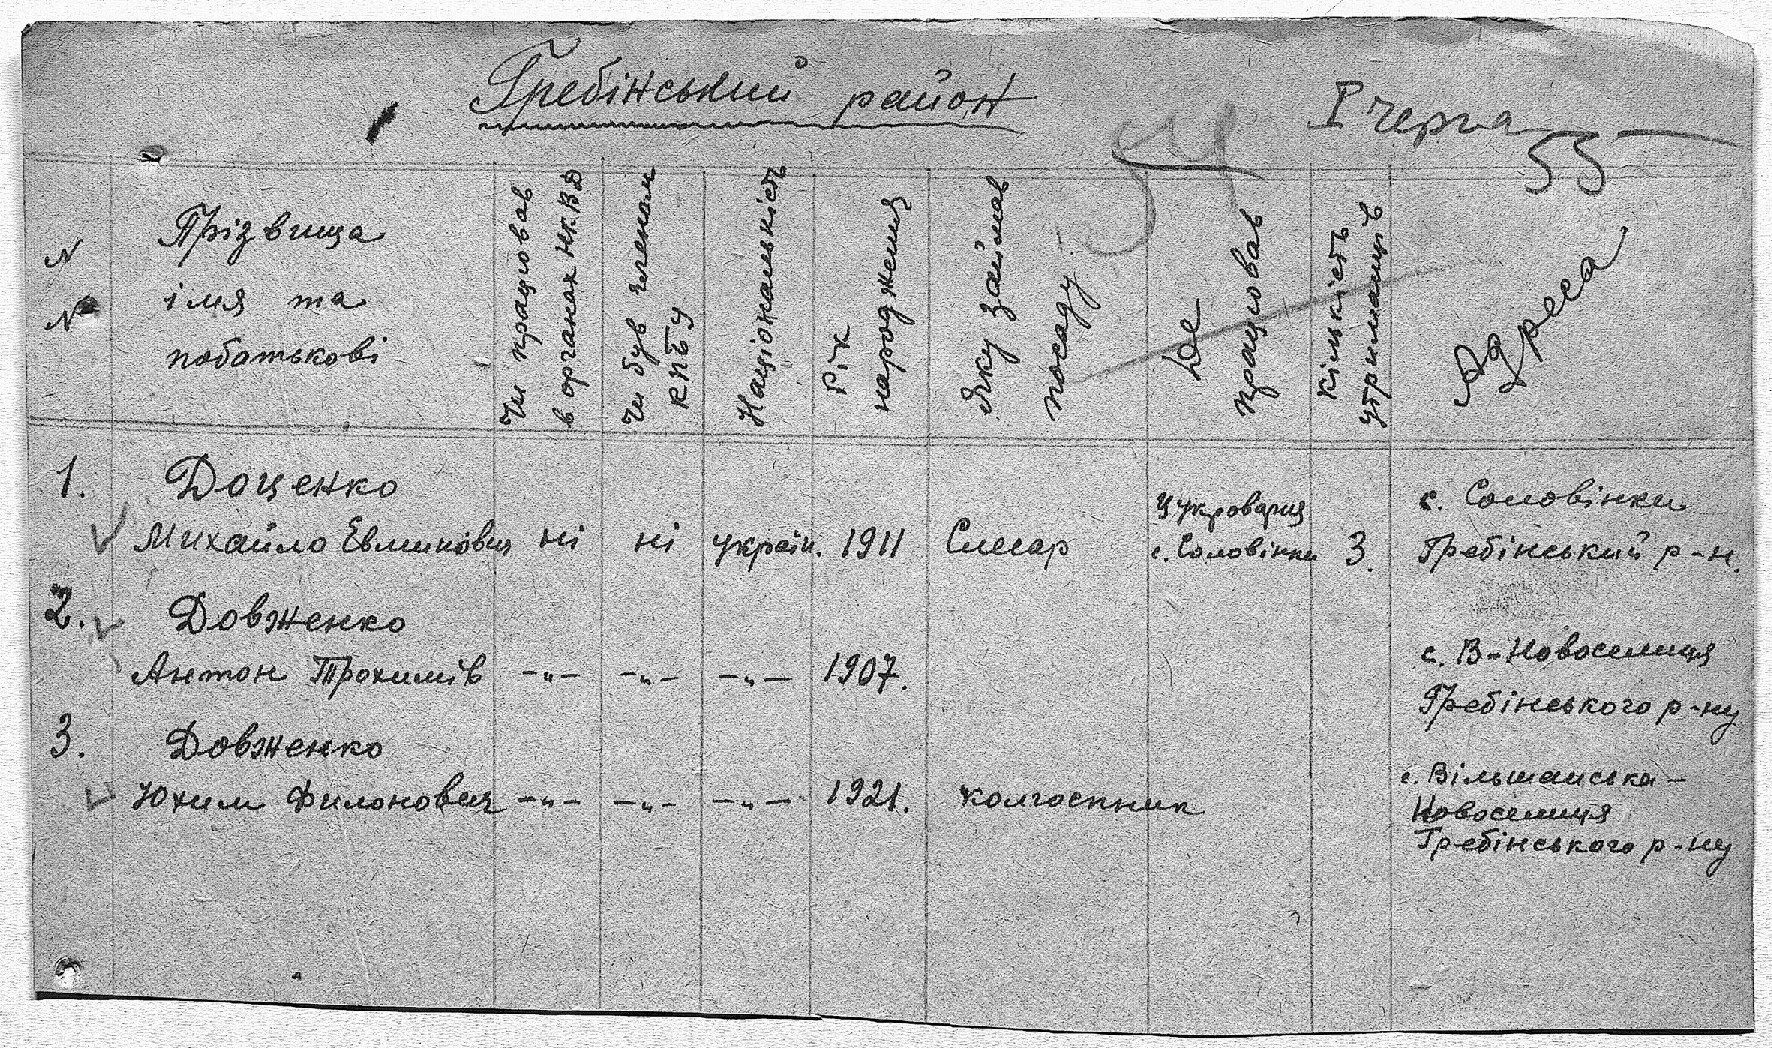 Гребінський район
І черга
54
55
N N
Прізвища
імя та
побатькові
Чи працював
в органах НКВД
Чи був членом
КПБУ
Національність
Рік
народження
Яку займав
посаду
Де
працював
Кількість
утриманців
Адреса
1. Доценко
Михайло Евминович ні ні україн. 1911 Слесар Цукроварня с. Соловінки 3. с. Соловінки
Гребінський р-н.
2. Довженко
Антон Трохимів -„- -„- -„- 1907. с. В-Новоселиця
Гребінського р-ну
3. Довженко
Юхим Филонович -„- -„- -„- 1921. колгоспник с. Вільшанська-
Новоселиця
Гребінського р-ну